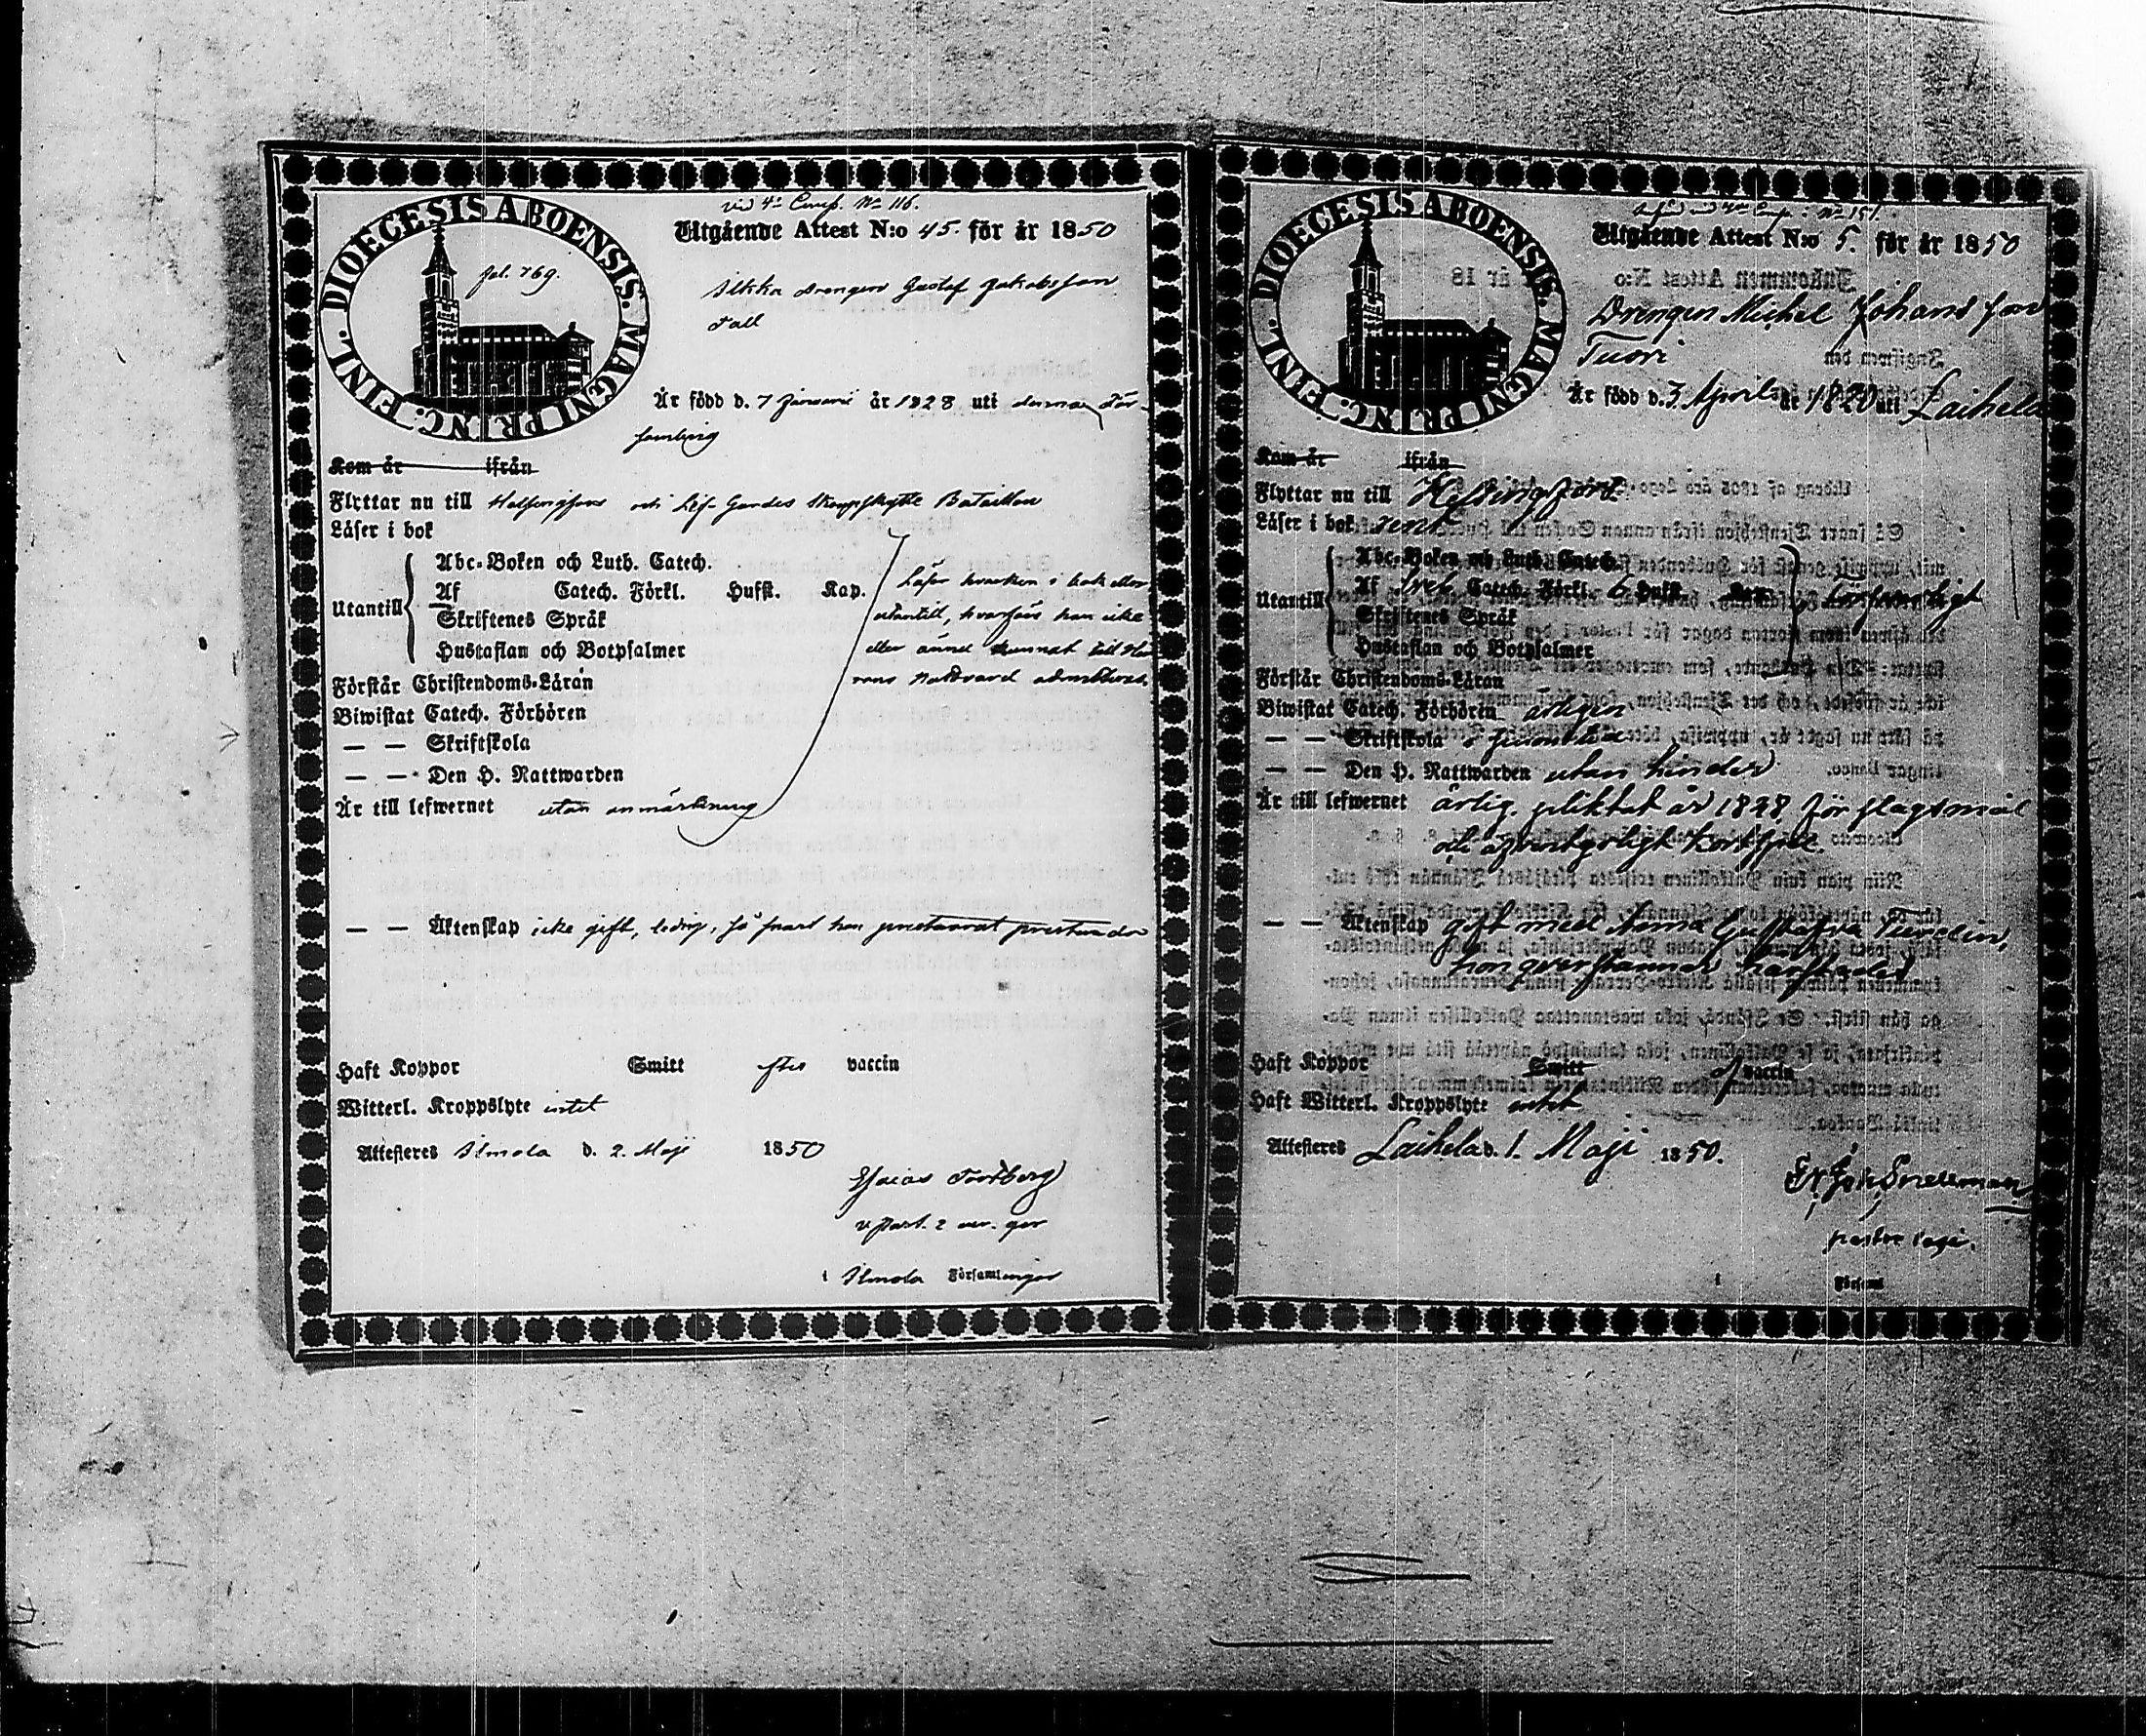 vid 4de Comp. No 116.
DIOECESIS ABOENSIS. MAGNI PRINC. FINL.
fol. 769.
Utgående Attest N:o 45. för år 1850
Ilkka drengen Gustaf Jakobsson
Tall
Är född d. 7 Januarii år 1828 uti denna För-
samling
Kom år ifrån
Flyttar nu till Helsingfors och Lif-Gardes Skarpskytte Bataillon
Läser i bok
Abc-Boken och Luth. Catech.
Utantill Af Catech. Förkl. Hufst. Kap.
Skriftenes Språk
Hustaflan och Botpsalmer
Läser hvarken i bok eller
utantill, hvarföre han icke
eller ännu kunnat till Her
rans Nattvard admitteras.
Förstår Christendoms-Läran
Biwistat Catech. Förhören
— — Skriftskola
— — Den H. Nattwarden
Är till lefwernet utan anmärkning
— — Äktenskap icke gift, ledig, så snart han praesterat praestanda
Haft Koppor Smitt vaccin
Witterl. Kroppslyte intet
Attesteres Ilmola d. 2 Maji 1850
Esaias Tordberg
v past.
i Ilmola Församlingar
vid 4de Comp. No 151.
DIOECESIS ABOENSIS. MAGNI PRINC. FINL.
Utgående Attest N:o 5. för år 1850
Drengen Michel Johansson
Tuori
Är född d. 3 Aprils år 1820 uti Laihela
Kom år ifrån
Flyttar nu till Helsingfors
Läser i bok rent
Abc-Boken och Luth. Catech.
Utantill Af Catech. Förkl. 6 Hufst. Kap.
Skriftenes Språk
Hustaflan och Botpsalmer
försvarligt
Förstår Christendoms-Läran
Biwistat Catech. Förhören årligen
— — Skriftskola i
— — Den H. Nattwarden utan hinder
Är till lefwernet ärlig. pliktat år 1848 för slagsmål
och
— — Äktenskap gift med Anna Gustafva
hon qvarstannar härstädes
Haft Koppor Smitt vaccin
Haft Witterl. Kroppslyte intet
Attesteres Laihela d. 1. Maji 1850.
Fr. Joh. Snellman
pastor loci.
i Församl